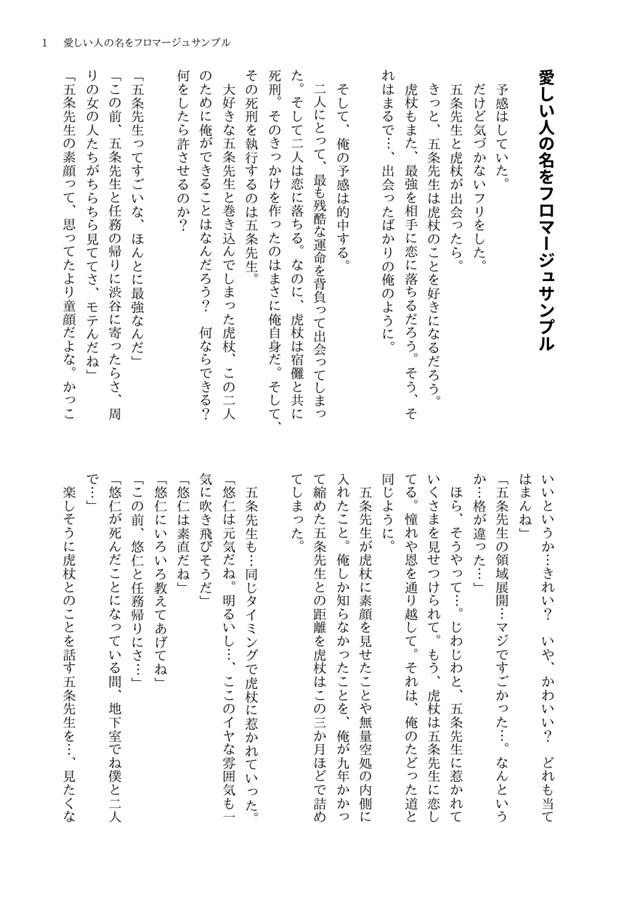 1　愛しい人の名をフロマージュサンプル
愛しい人の名をフロマージュサンプル
予感はしていた。
だけど気づかないフリをした。
五条先生と虎杖が出会ったら。
きっと、五条先生は虎杖のことを好きになるだろう。
虎杖もまた、最強を相手に恋に落ちるだろう。そう、そ
れはまるで…、出会ったばかりの俺のように。
そして、俺の予感は的中する。
二人にとって、最も残酷な運命を背負って出会ってしまっ
た。そして二人は恋に落ちる。なのに、虎杖は宿儺と共に
死刑。そのきっかけを作ったのはまさに俺自身だ。そして、
その死刑を執行するのは五条先生。
大好きな五条先生と巻き込んでしまった虎杖、この二人
のために俺ができることはなんだろう？　何ならできる？
何をしたら許させるのか？
「五条先生ってすごいな、ほんとに最強なんだ」
「この前、五条先生と任務の帰りに渋谷に寄ったらさ、周
りの女の人たちがちらちら見ててさ、モテんだね」
「五条先生の素顔って、思ってたより童顔だよな。かっこ
いいというか…きれい？　いや、かわいい？　どれも当て
はまんね」
「五条先生の領域展開…マジですごかった…。なんという
か…格が違った…」
ほら、そうやって…。じわじわと、五条先生に惹かれて
いくさまを見せつけられて。もう、虎杖は五条先生に恋し
てる。憧れや恩を通り越して。それは、俺のたどった道と
同じように。
五条先生が虎杖に素顔を見せたことや無量空処の内側に
入れたこと。俺しか知らなかったことを、俺が九年かかっ
て縮めた五条先生との距離を虎杖はこの三か月ほどで詰め
てしまった。
五条先生も…同じタイミングで虎杖に惹かれていった。
「悠仁は元気だね。明るいし…、ここのイヤな雰囲気も一
気に吹き飛びそうだ」
「悠仁は素直だね」
「悠仁にいろいろ教えてあげてね」
「この前、悠仁と任務帰りにさ…」
「悠仁が死んだことになっている間、地下室でね僕と二人
で…」
楽しそうに虎杖とのことを話す五条先生を…、見たくな